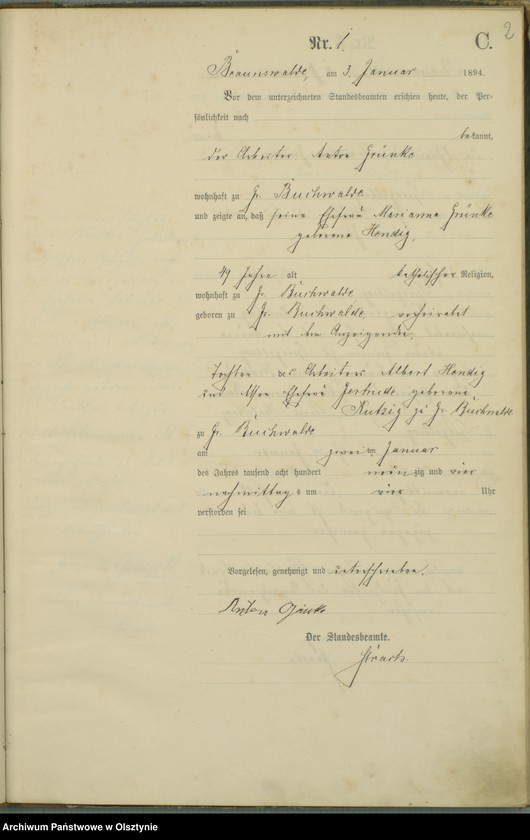 2
Nr. 1. C.
Braunswalde, am 3. Januar 1894.
Vor dem unterzeichneten Standesbeamten erschien heute, der Per-
sönlichkeit nach
bekannt,
der Arbeiter Anton Grünke
wohnhaft zu Gr. Buchwalde
und zeigte an, daß seine Ehefrau Marianna Grünke
geborene Hendig,
49 Jahre alt katholischer Religion,
wohnhaft zu Gr. Buchwalde
geboren zu Gr. Buchwalde, verheiratet
mit dem Anzeigenden,
Tochter des Arbeiters Albert Hendig
und dessen Ehefrau Gertrude geborene
zu Gr. Buchwalde
zu Gr. Buchwalde
am zweiten Januar
des Jahres tausend acht hundert neun zig und vier
nachmittags um vier Uhr
verstorben sei
Vorgelesen, genehmigt und unterschrieben.
Anton
Der Standesbeamte.
Archiwum Państwowe w Olsztynie